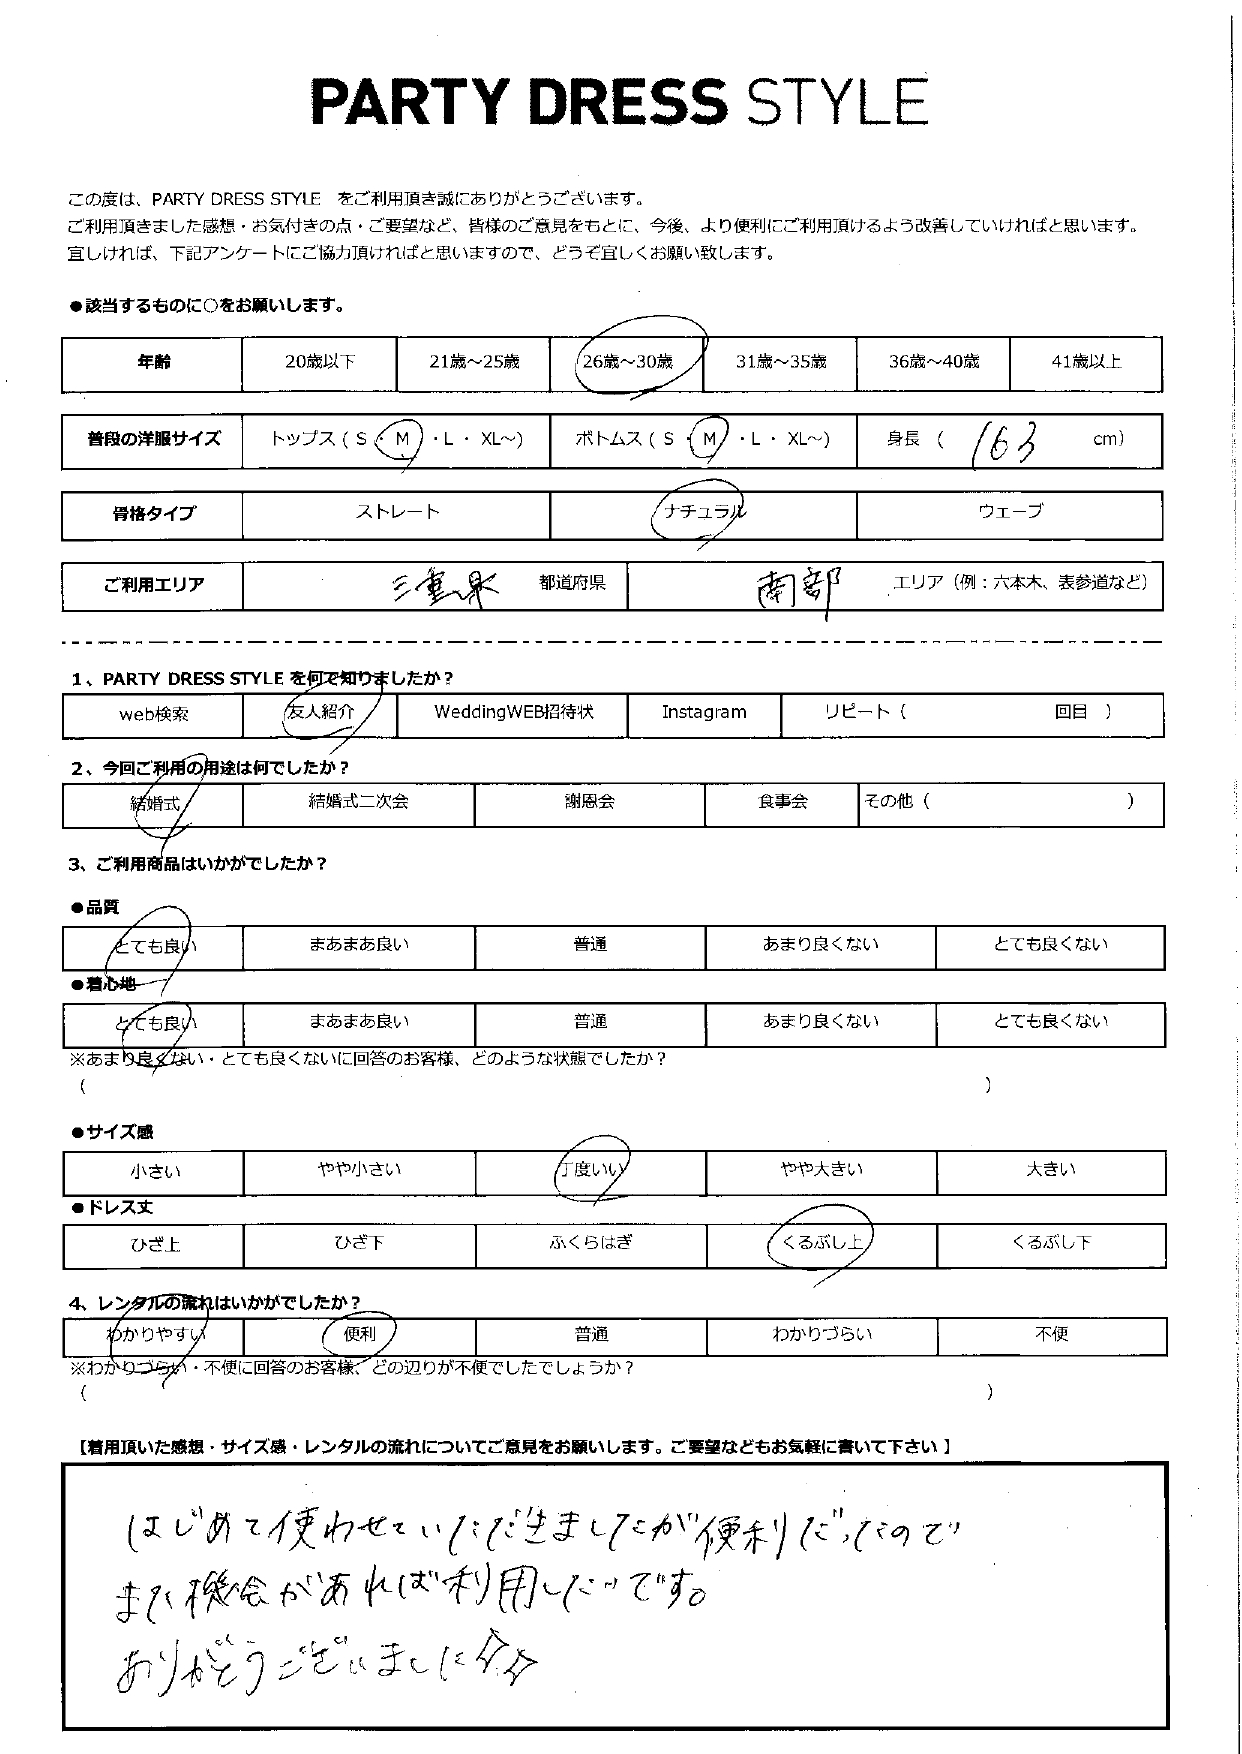 PARTY DRESS STYLE
この度は、PARTY DRESS STYLE をご利用頂き誠にありがとうございます。
ご利用頂きました感想・お気付きの点・ご要望など、皆様のご意見をもとに、今後、より便利にご利用頂けるよう改善していければと思います。
宜しければ、下記アンケートにご協力頂ければと思いますので、どうぞ宜しくお願い致します。
●該当するものに○をお願いします。
年齢 20歳以下 21歳～25歳 26歳～30歳 31歳～35歳 36歳～40歳 41歳以上
普段の洋服サイズ トップス（ S ・ M ・L ・ XL～） ボトムス（ S ・ M ・L ・ XL～） 身長 （ 163 cm）
骨格タイプ ストレート ナチュラル ウェーブ
ご利用エリア 三重県 都道府県 南部 エリア（例：六本木、表参道など）
1、PARTY DRESS STYLE を何で知りましたか？
web検索 友人紹介 WeddingWEB招待状 Instagram リピート（ 回目 ）
2、今回ご利用の用途は何でしたか？
結婚式 結婚式二次会 謝恩会 食事会 その他（ ）
3、ご利用商品はいかがでしたか？
●品質
とても良い まあまあ良い 普通 あまり良くない とても良くない
●着心地
とても良い まあまあ良い 普通 あまり良くない とても良くない
※あまり良くない・とても良くないに回答のお客様、どのような状態でしたか？
（ ）
●サイズ感
小さい やや小さい 丁度いい やや大きい 大きい
●ドレス丈
ひざ上 ひざ下 ふくらはぎ くるぶし上 くるぶし下
4、レンタルの流れはいかがでしたか？
わかりやすい 便利 普通 わかりづらい 不便
※わかりづらい・不便に回答のお客様、どの辺りが不便でしたでしょうか？
（ ）
【着用頂いた感想・サイズ感・レンタルの流れについてご意見をお願いします。ご要望などもお気軽に書いて下さい 】
はじめて使わせていただきましたが便利だったので
また機会があれば利用したいです。
ありがとうございました☆☆